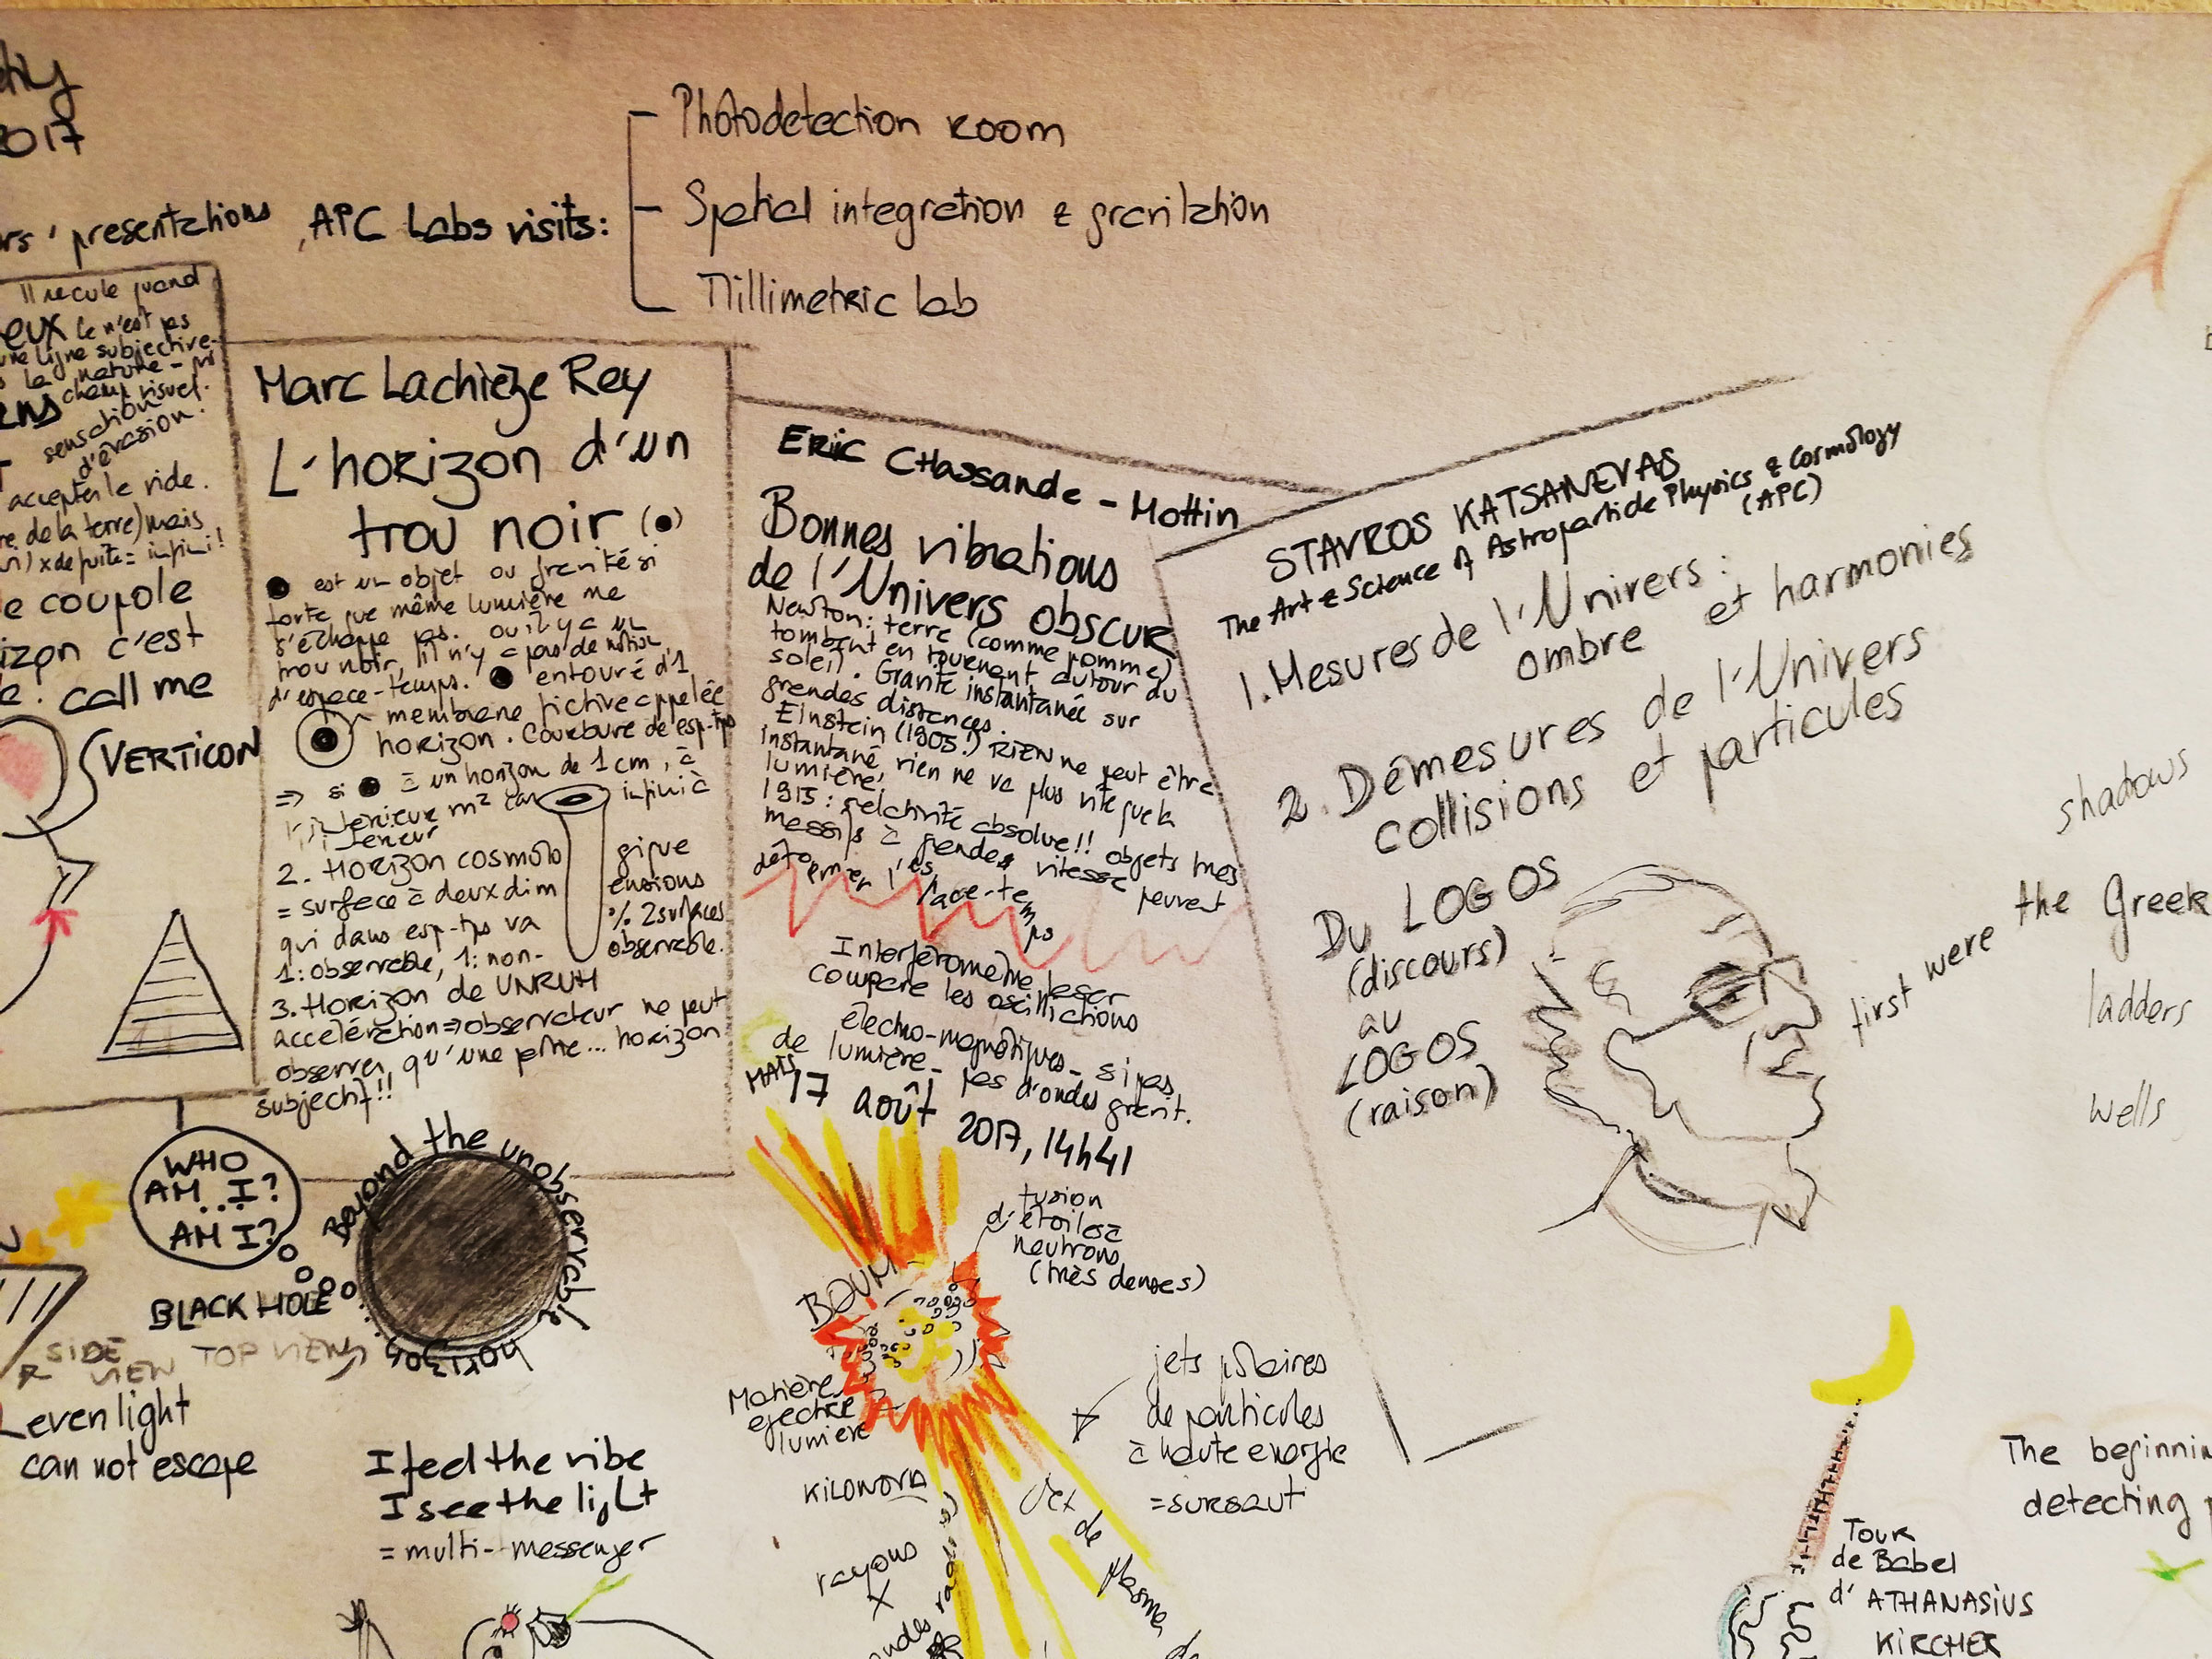 2017
presentations, APC Labs visits:
Photodetection room
Spatial integration & gravitation
Millimetric lab
Il recule quand
eux Ce n'est pas
une ligne subjective-
la nature - ni
champ visuel.
sensation
d'évasion.
accepter le vide.
de la terre) mais
infini!
coupole
c'est
call me
VERTICON
Marc Lachièze Rey
L'horizon d'un
trou noir (●)
● est un objet où gravité si
forte que même lumière ne
s'échappe pas. où il y a un
trou noir, il n'y a pas de notion
d'espace-temps. ● entouré d'1
membrane fictive appelée
horizon. Courbure de esp-tps
=> si ● = un horizon de 1 cm, à
l'intérieur m² car infini à
l'intérieur
2. Horizon cosmolo gique
= surface à deux dim ensions
qui dans esp-tps va % 2 surfaces
1: observable, 1: non- observable.
3. Horizon de UNRUH
accélération => observateur ne peut
observer qu'une ptie... horizon
subjectif!!
Eric Chassande-Mottin
Bonnes vibrations
de l'Univers obscur
Newton: terre (comme pomme)
tombent en tournant autour du
soleil. Gravité instantanée sur
grandes distances.
Einstein (1905!) RIEN ne peut être
instantané, rien ne va plus vite que la
lumière!
1915: relativité absolue!! objets très
massifs à grandes vitesse peuvent
déformer l'espace-temps
Interféromètre laser
compare les oscillations
électro-magnétiques
de lumière - si pas,
pas d'ondes gravit.
MAIS 17 août 2017, 14h41
fusion
d'étoiles à
neutrons
(très denses)
BOUM
Matière
ejectée
lumière
KILONOVA
rayons
X
jets polaires
de particules
à haute energie
= sursaut
Jet de Plasma de
STAVROS KATSANEVAS
The Art & Science of Astroparticle Physics & Cosmology
(APC)
1. Mesures de l'Univers:
ombre et harmonies
2. Démesures de l'Univers
collisions et particules
Du LOGOS
(discours)
au
LOGOS
(raison)
first were the Greek
shadows
ladders
wells
WHO
AM I?
..
AM I?
Beyond the unobservable horizon
BLACK HOLE
SIDE
VIEW
TOP VIEW
even light
can not escape
I feel the vibe
I see the light
= multi-messenger
The beginnin
detecting
Tour
de Babel
d'ATHANASIUS
KIRCHER